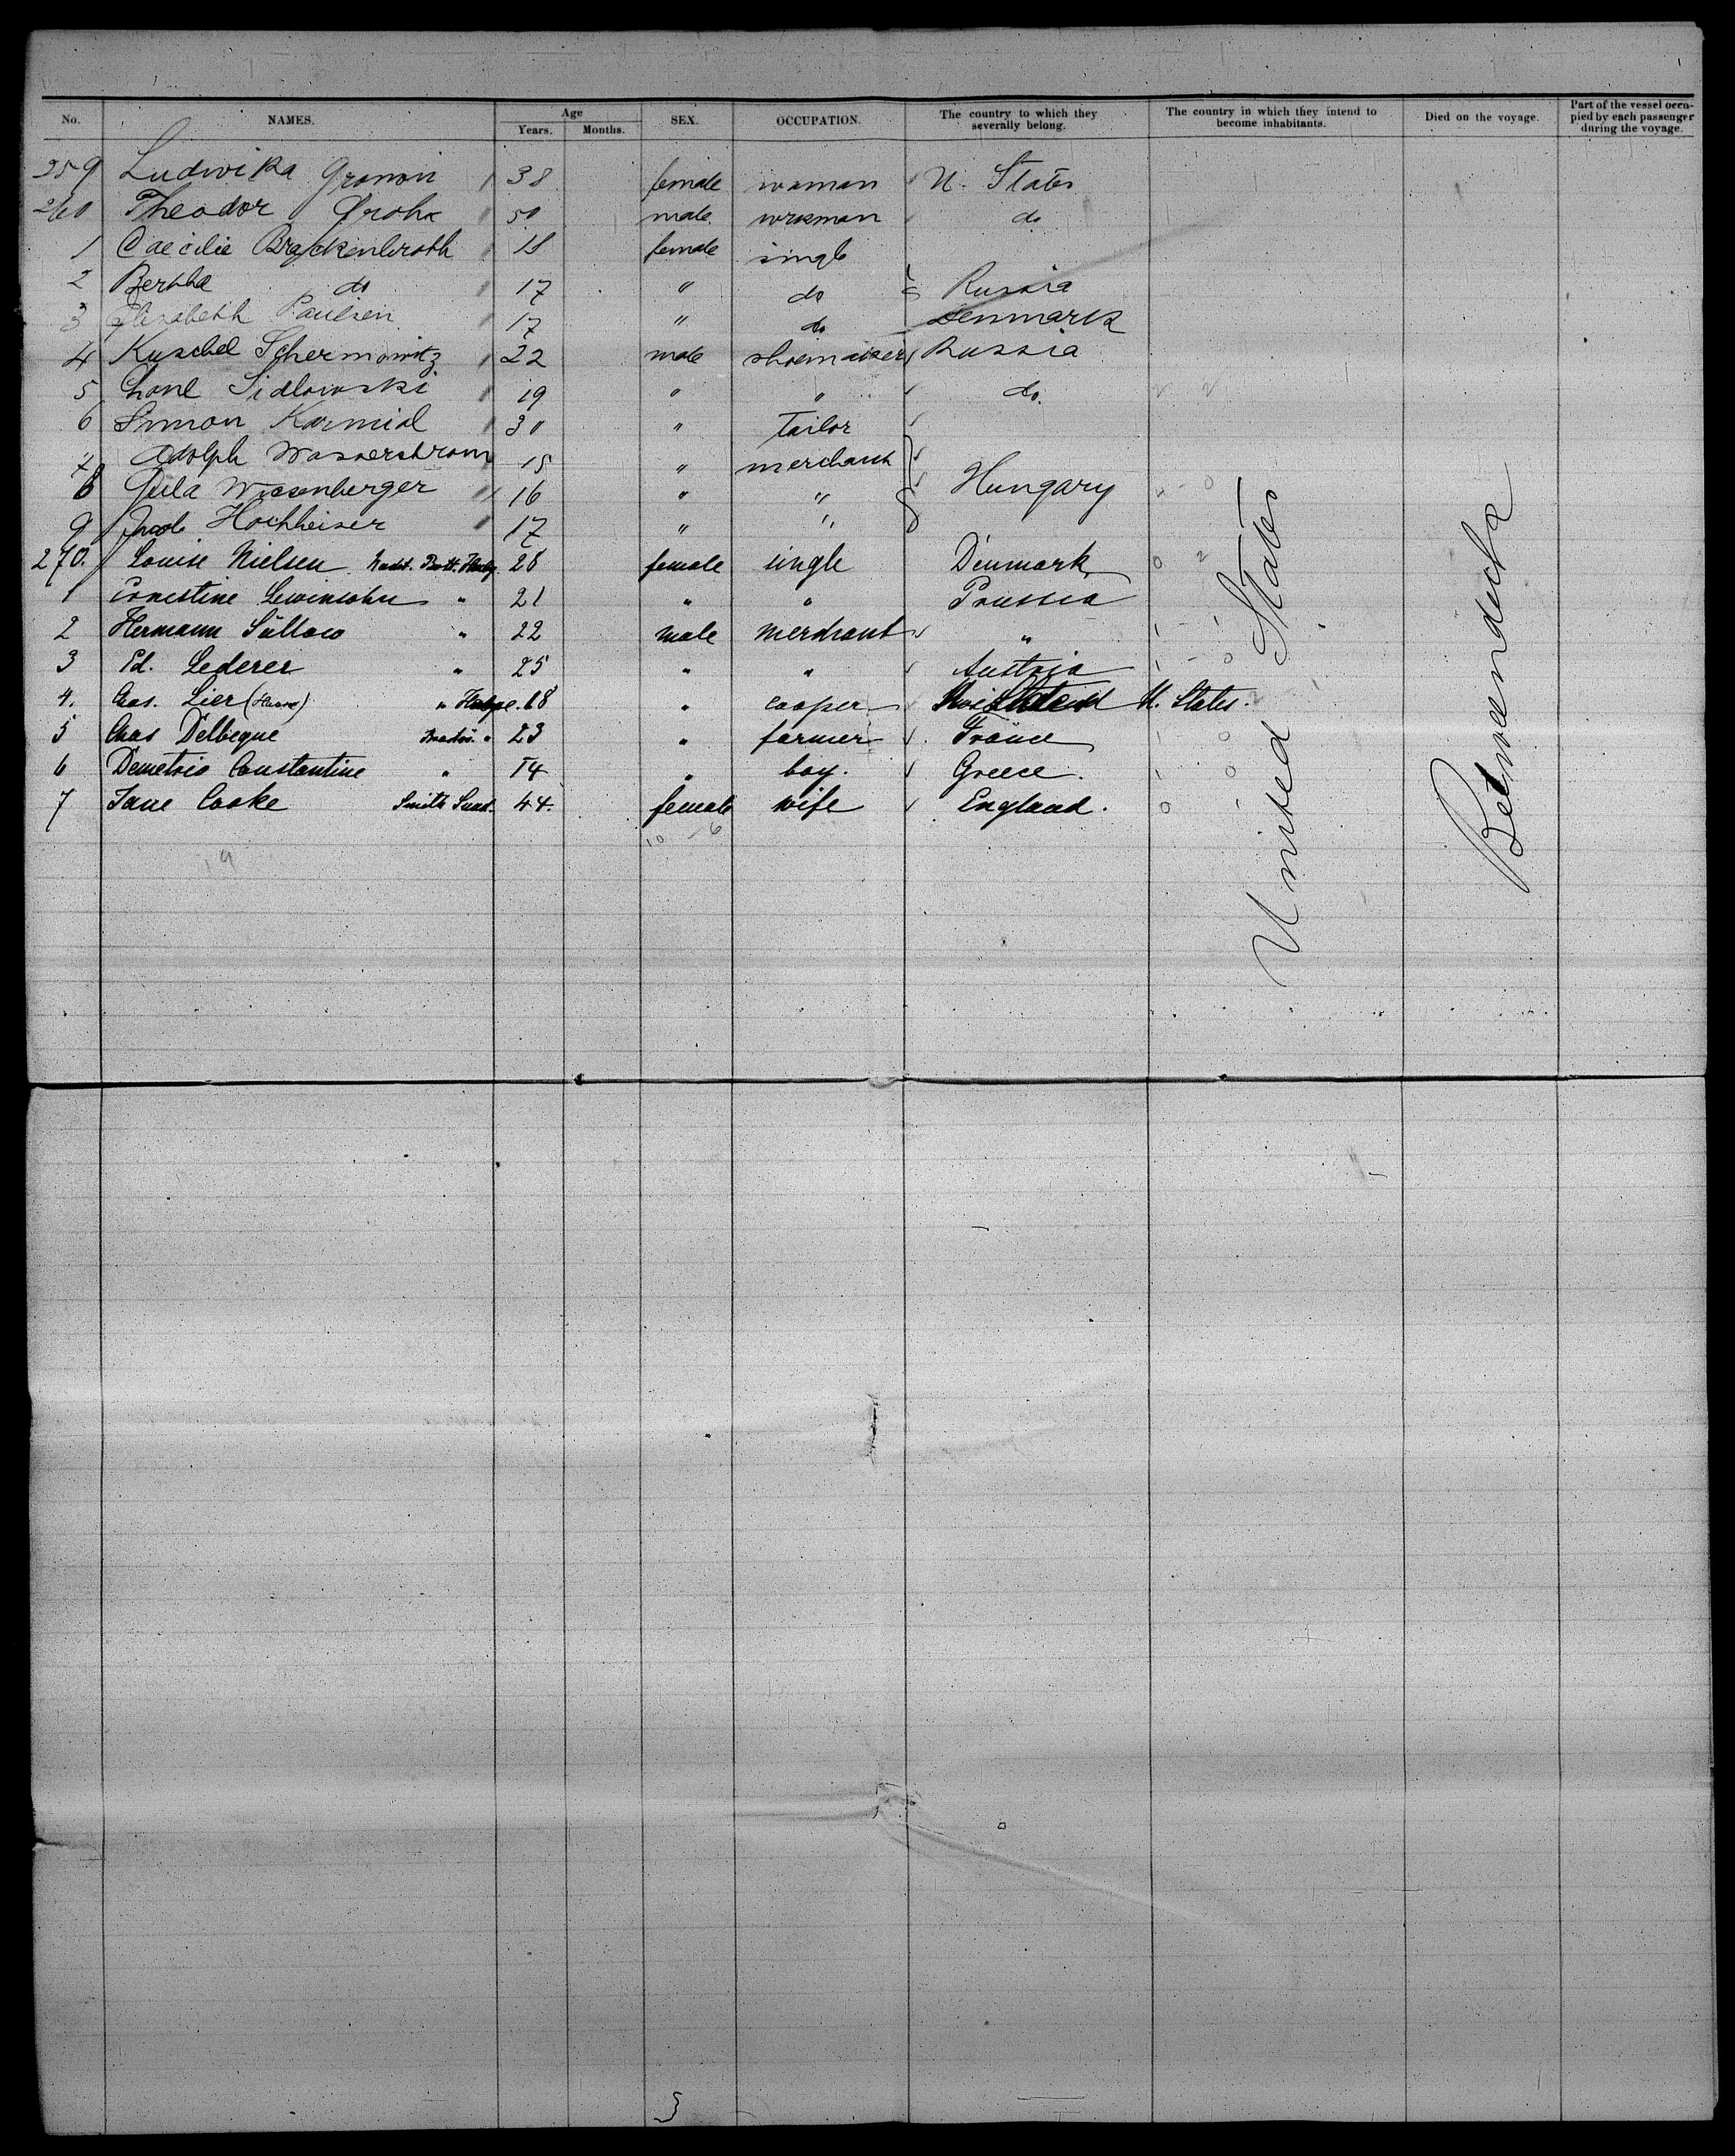 No. NAMES. Age Years. Months. SEX. OCCUPATION. The country to which they severally belong. The country in which they intend to become inhabitants. Died on the voyage. Part of the vessel occupied by each passenger during the voyage.
259 Ludwika 38 female woman U. States
260 Theodor Grohs 50 male workman do
1 Caecilie Brackenbroth 18 female single
2 Bertha do 17 " do Russia
3 Elisabeth Paulsen 17 " do Denmark
4 Kuschel Schermowitz 22 male shoemaker Russia
5 Sidlowski 19 " " do.
6 Simon Karmiol 30 " Tailor
7 Adolph Wasserstrom 15 " merchant
8 Gula Wiesenberger 16 " " Hungary
9 Jacob Hochheiser 17 " "
270. Louise Nielsen 28 female single Denmark
1 Ernestine Lewinsohn " 21 " " Prussia
2 Hermann Süllow " 22 male merchant "
3 Ed. Lederer " 25 " " Austria
4. Chas. Lier " 68 " cooper U. States.
5 Chas Delbeque " 23 " farmer France
6 Demetrio Constantine " 14 " boy. Greece.
7 Jane Cooke Smith Sund. 44. female wife England.
10 - 6
19
United States
Betweendecks